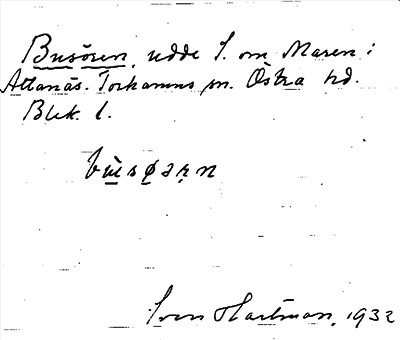 Busören, udde S. om Maren i
Attanäs. Torhamns sn. Östra hd.
Blek. l.
bùsøʀn
Sven Hartman, 1932